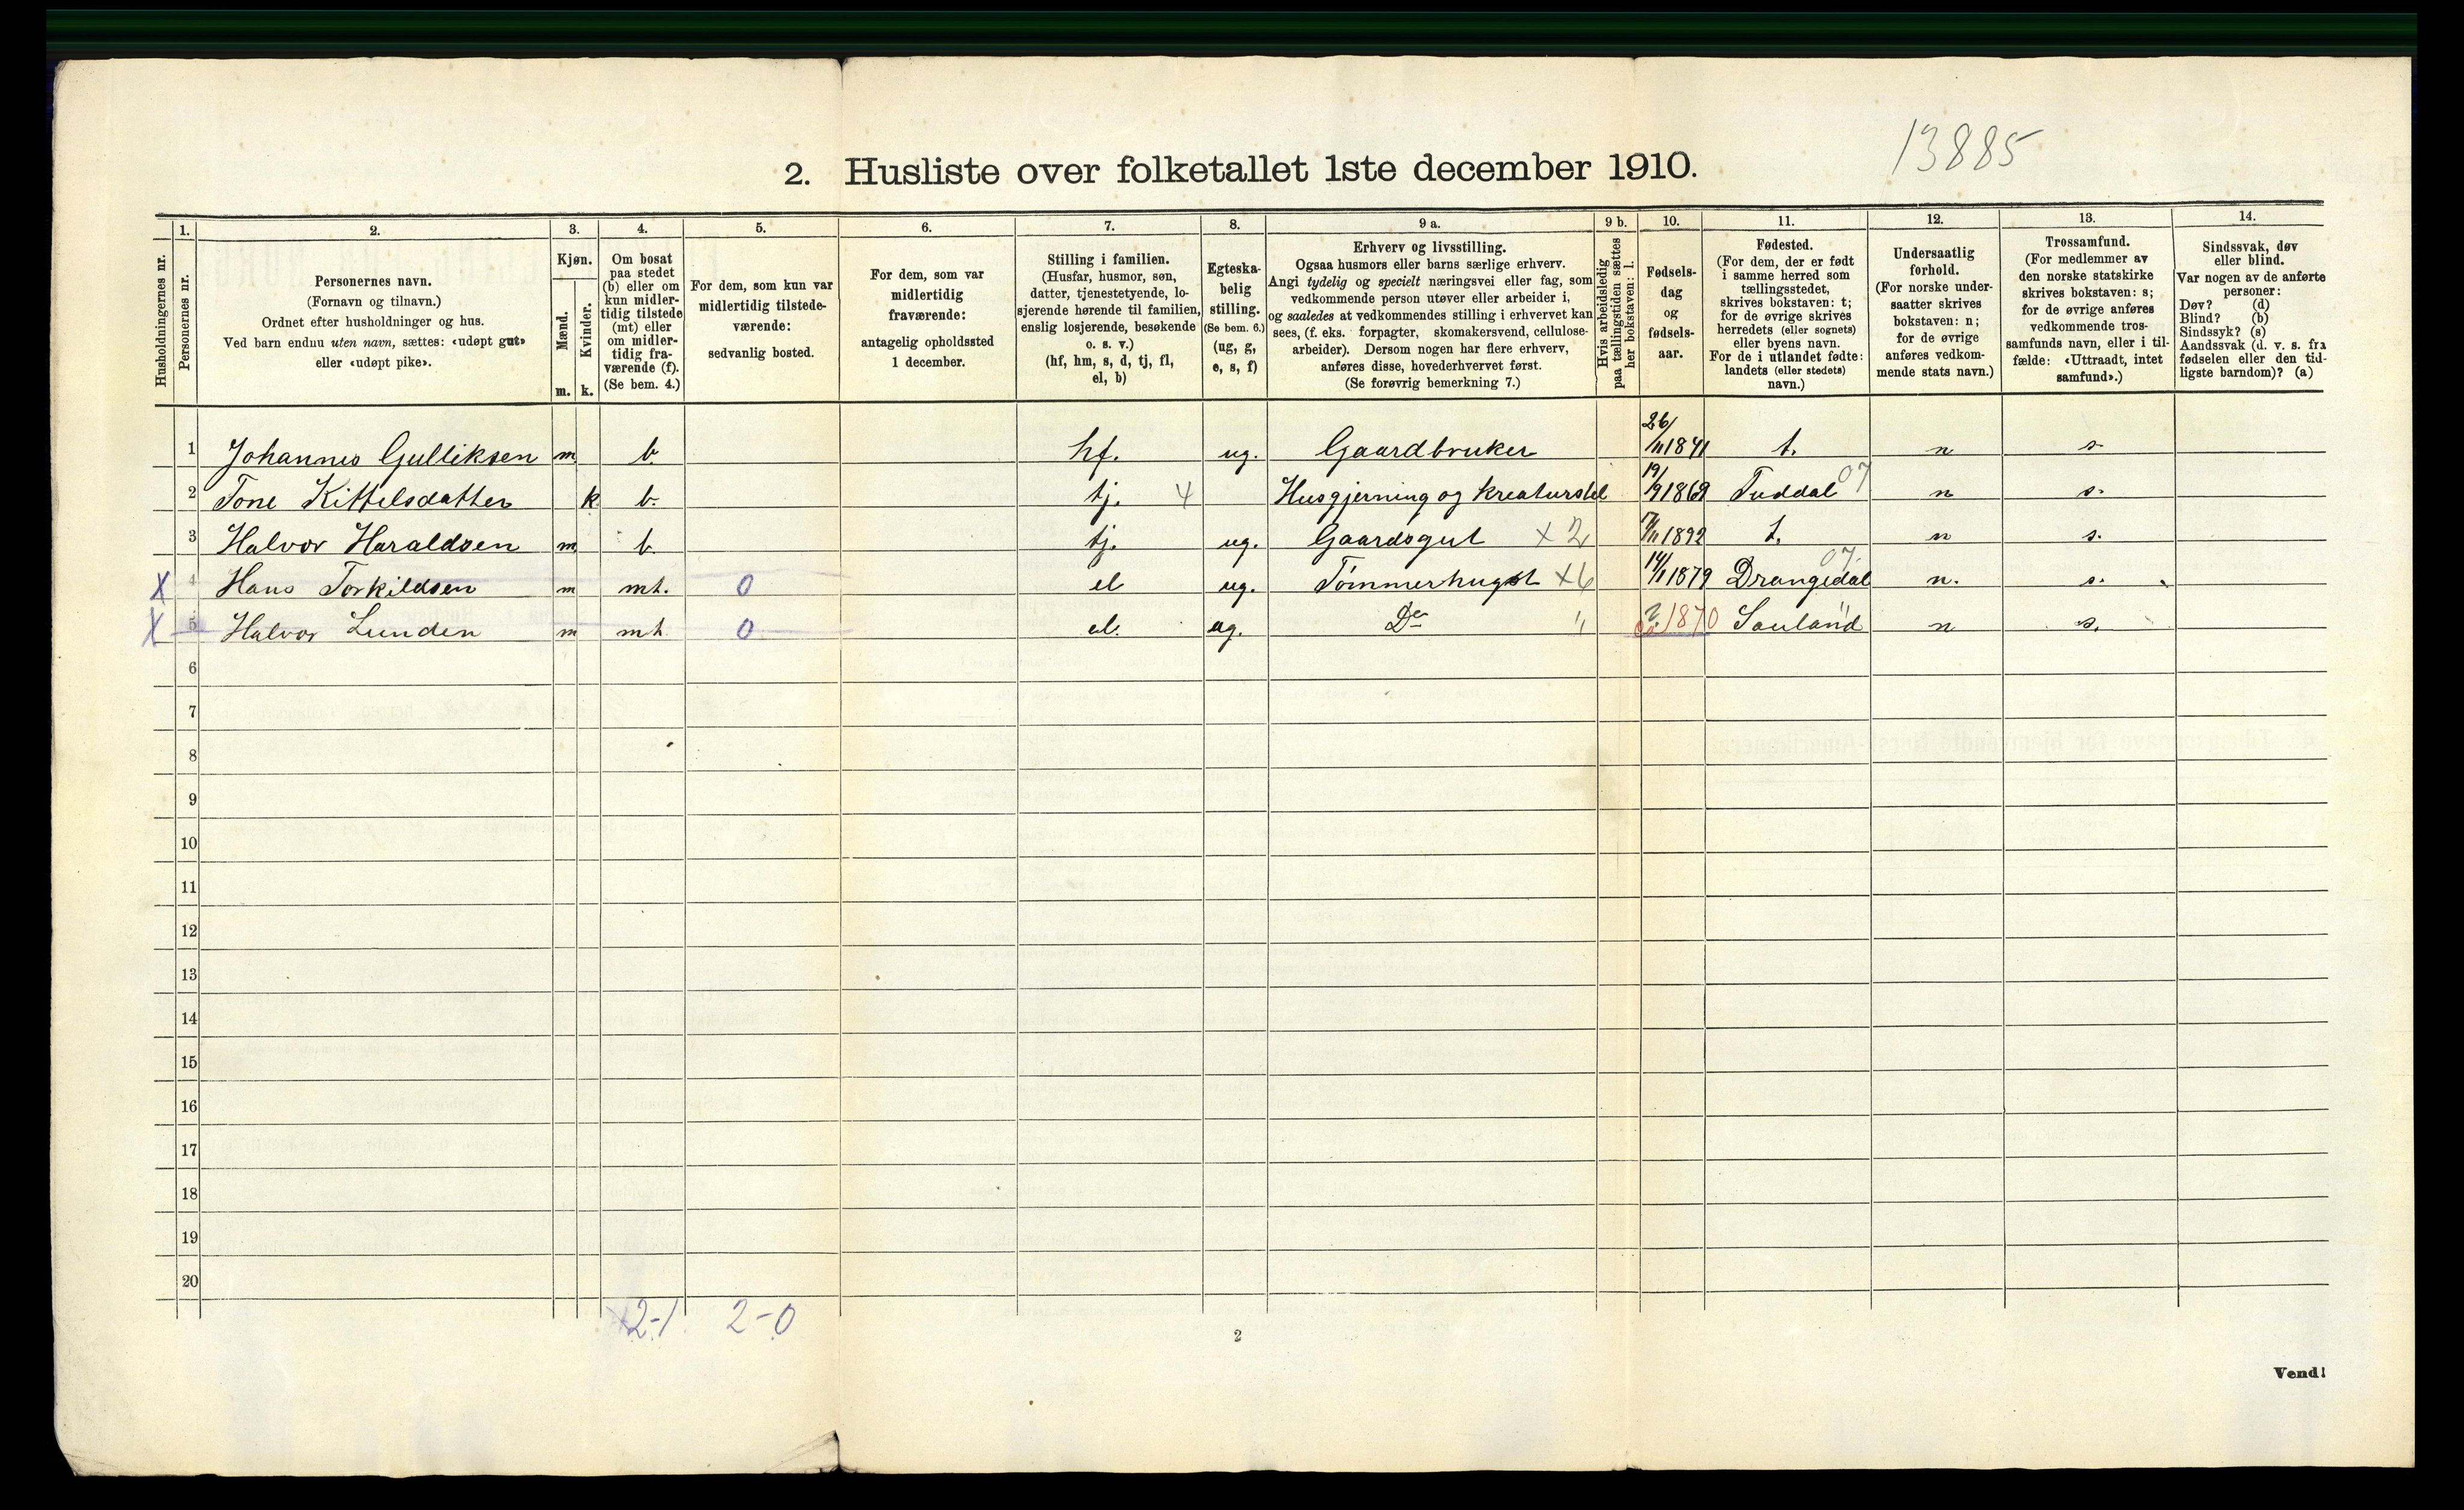 13885
2. Husliste over folketallet 1ste december 1910.
Husholdningernes nr.
1.
Personernes nr.
2.
Personernes navn.
(Fornavn og tilnavn.)
Ordnet efter husholdninger og hus.
Ved barn endnu uten navn, sættes: «udøpt gut»
eller «udøpt pike».
3.
Kjøn.
Mænd.
Kvinder.
m. k.
4.
Om bosat
paa stedet
(b) eller om
kun midler-
tidig tilstede
(mt) eller
om midler-
tidig fra-
værende (f).
(Se bem. 4.)
5.
For dem, som kun var
midlertidig tilstede-
værende:
sedvanlig bosted.
6.
For dem, som var
midlertidig
fraværende:
antagelig opholdssted
1 december.
7.
Stilling i familien.
(Husfar, husmor, søn,
datter, tjenestetyende, lo-
sjerende hørende til familien,
enslig losjerende, besøkende
o. s. v.)
(hf, hm, s, d, tj, fl,
el, b)
8.
Egteska-
belig
stilling.
(Se bem. 6.)
(ug, g,
e, s, f)
9 a.
Erhverv og livsstilling.
Ogsaa husmors eller barns særlige erhverv.
Angi tydelig og specielt næringsvei eller fag, som
vedkommende person utøver eller arbeider i,
og saaledes at vedkommendes stilling i erhvervet kan
sees, (f. eks. forpagter, skomakersvend, cellulose-
arbeider). Dersom nogen har flere erhverv,
anføres disse, hovederhvervet først.
(Se forøvrig bemerkning 7.)
9 b.
Hvis arbeidsledig
paa tællingstiden sættes
her bokstaven: l.
10.
Fødsels-
dag
og
fødsels-
aar.
11.
Fødested.
(For dem, der er født
i samme herred som
tællingsstedet,
skrives bokstaven: t;
for de øvrige skrives
herredets (eller sognets)
eller byens navn.
For de i utlandet fødte:
landets (eller stedets)
navn.)
12.
Undersaatlig
forhold.
(For norske under-
saatter skrives
bokstaven: n;
for de øvrige
anføres vedkom-
mende stats navn.)
13.
Trossamfund.
(For medlemmer av
den norske statskirke
skrives bokstaven: s;
for de øvrige anføres
vedkommende tros-
samfunds navn, eller i til-
fælde: «Uttraadt, intet
samfund».)
14.
Sindssvak, døv
eller blind.
Var nogen av de anførte
personer:
Døv? (d)
Blind? (b)
Sindssyk? (s)
Aandssvak (d. v. s. fra
fødselen eller den tid-
ligste barndom)? (a)
1 Johannes Gulliksen m b. hf. ug. Gaardbruker 26/11 1841 t. n s
2 Tone Kittelsdatter k b. tj. 4 Husgjerning og kreaturstel 19/9 1869 Tuddal 07 n s.
3 Halvor Haraldsen m b tj. ug. Gaardsgut x 2 7/11 1892 t. n s.
X 4 Hans Torkildsen m mt. 0 el ug. Tømmerhugst x6 14/1 1879 Drangedal 07. n. s.
X 5 Halvor Lunden m mt 0 el. ug. Do " ? 1870 Sauland " n s.
6
7
8
9
10
11
12
13
14
15
16
17
18
19
20
x2-1 2-0
2
Vend!